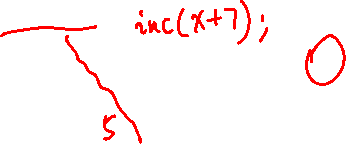 inc(x+7);
5